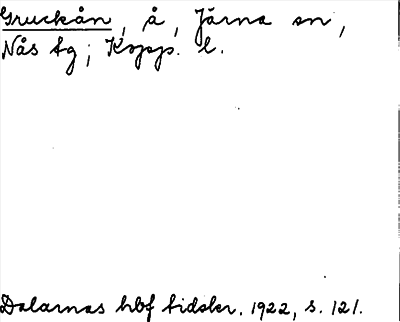 Gruckån, å, Järna sn,
Nås tg; Kopp. l.
Dalarnas hbf tidskr. 1922, s. 121.